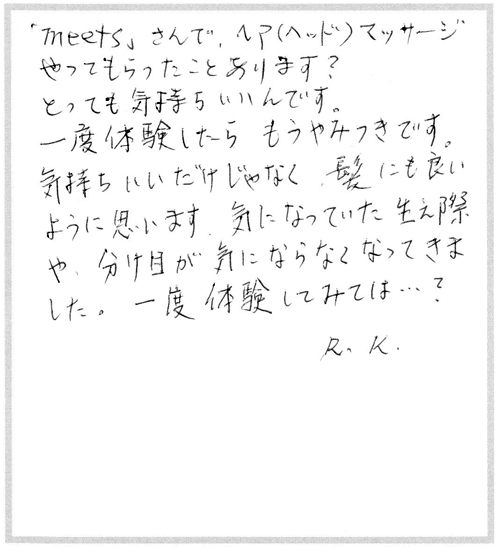 「meets」さんで、ヘア(ヘッド)マッサージ
やってもらったことあります?
とっても気持ちいいんです。
一度体験したら もうやみつきです。
気持ちいいだけじゃなく、髪にも良い
ように思います。気になっていた生え際
や、分け目が気にならなくなってきま
した。一度体験してみては…?
R. K.